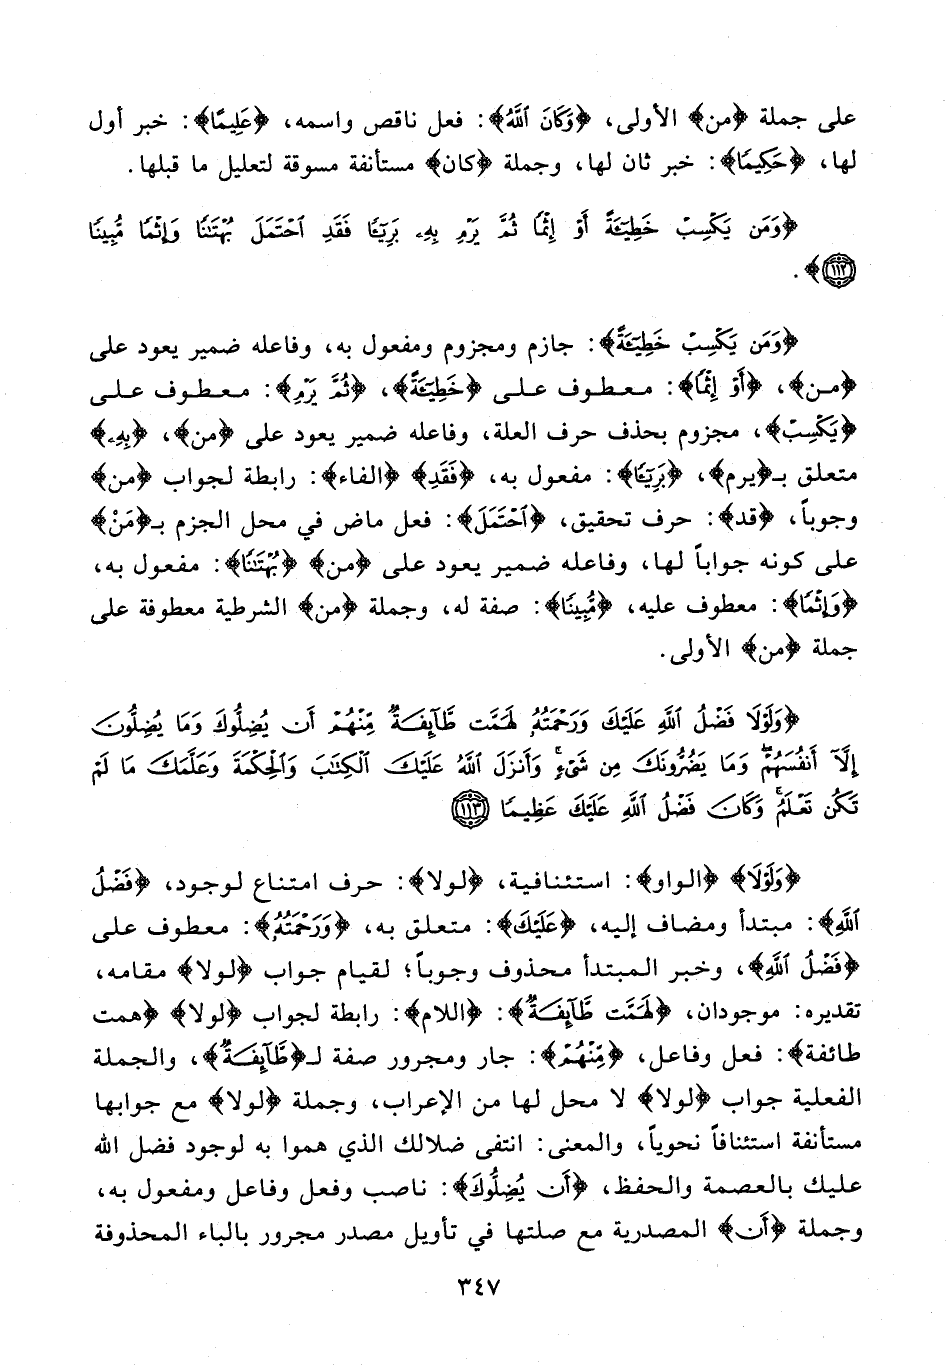 على جملة ﴿من﴾ الأولى، ﴿وَكَانَ ٱللَّهُ﴾: فعل ناقص واسمه، ﴿عَلِيمًا﴾: خبر أول
لها، ﴿حَكِيمًا﴾: خبر ثان لها، وجملة ﴿كان﴾ مستأنفة مسوقة لتعليل ما قبلها.
﴿وَمَن يَكْسِبْ خَطِيٓـَٔةً أَوْ إِثْمًا ثُمَّ يَرْمِ بِهِۦ بَرِيٓـًٔا فَقَدِ ٱحْتَمَلَ بُهْتَٰنًا وَإِثْمًا مُّبِينًا
١١٢﴾.
﴿وَمَن يَكْسِبْ خَطِيٓـَٔةً﴾: جازم ومجزوم ومفعول به، وفاعله ضمير يعود على
﴿من﴾، ﴿أَوْ إِثْمًا﴾: معطوف على ﴿خَطِيٓـَٔةً﴾، ﴿ثُمَّ يَرْمِ﴾: معطوف على
﴿يَكْسِبْ﴾، مجزوم بحذف حرف العلة، وفاعله ضمير يعود على ﴿من﴾، ﴿بِهِۦ﴾
متعلق بـ﴿يرم﴾، ﴿بَرِيٓـًٔا﴾: مفعول به، ﴿فَقَدِ﴾ ﴿الفاء﴾: رابطة لجواب ﴿من﴾
وجوباً، ﴿قد﴾: حرف تحقيق، ﴿ٱحْتَمَلَ﴾: فعل ماض في محل الجزم بـ﴿مَنْ﴾
على كونه جواباً لها، وفاعله ضمير يعود على ﴿من﴾ ﴿بُهْتَٰنًا﴾: مفعول به،
﴿وَإِثْمًا﴾: معطوف عليه، ﴿مُّبِينًا﴾: صفة له، وجملة ﴿من﴾ الشرطية معطوفة على
جملة ﴿من﴾ الأولى.
﴿وَلَوْلَا فَضْلُ ٱللَّهِ عَلَيْكَ وَرَحْمَتُهُۥ لَهَمَّت طَّآئِفَةٌ مِّنْهُمْ أَن يُضِلُّوكَ وَمَا يُضِلُّونَ
إِلَّآ أَنفُسَهُمْ ۖ وَمَا يَضُرُّونَكَ مِن شَىْءٍ ۚ وَأَنزَلَ ٱللَّهُ عَلَيْكَ ٱلْكِتَٰبَ وَٱلْحِكْمَةَ وَعَلَّمَكَ مَا لَمْ
تَكُن تَعْلَمُ ۚ وَكَانَ فَضْلُ ٱللَّهِ عَلَيْكَ عَظِيمًا ١١٣
﴿وَلَوْلَا﴾ ﴿الواو﴾: استئنافية، ﴿لولا﴾: حرف امتناع لوجود، ﴿فَضْلُ
ٱللَّهِ﴾: مبتدأ ومضاف إليه، ﴿عَلَيْكَ﴾: متعلق به، ﴿وَرَحْمَتُهُۥ﴾: معطوف على
﴿فَضْلُ ٱللَّهِ﴾، وخبر المبتدأ محذوف وجوباً؛ لقيام جواب ﴿لولا﴾ مقامه،
تقديره: موجودان، ﴿لَهَمَّت طَّآئِفَةٌ﴾: ﴿اللام﴾: رابطة لجواب ﴿لولا﴾ ﴿همت
طائفة﴾: فعل وفاعل، ﴿مِّنْهُمْ﴾: جار ومجرور صفة لـ﴿طَّآئِفَةٌ﴾، والجملة
الفعلية جواب ﴿لولا﴾ لا محل لها من الإعراب، وجملة ﴿لولا﴾ مع جوابها
مستأنفة استئنافاً نحوياً، والمعنى: انتفى ضلالك الذي هموا به لوجود فضل الله
عليك بالعصمة والحفظ، ﴿أَن يُضِلُّوكَ﴾: ناصب وفعل وفاعل ومفعول به،
وجملة ﴿أَن﴾ المصدرية مع صلتها في تأويل مصدر مجرور بالباء المحذوفة
٣٤٧